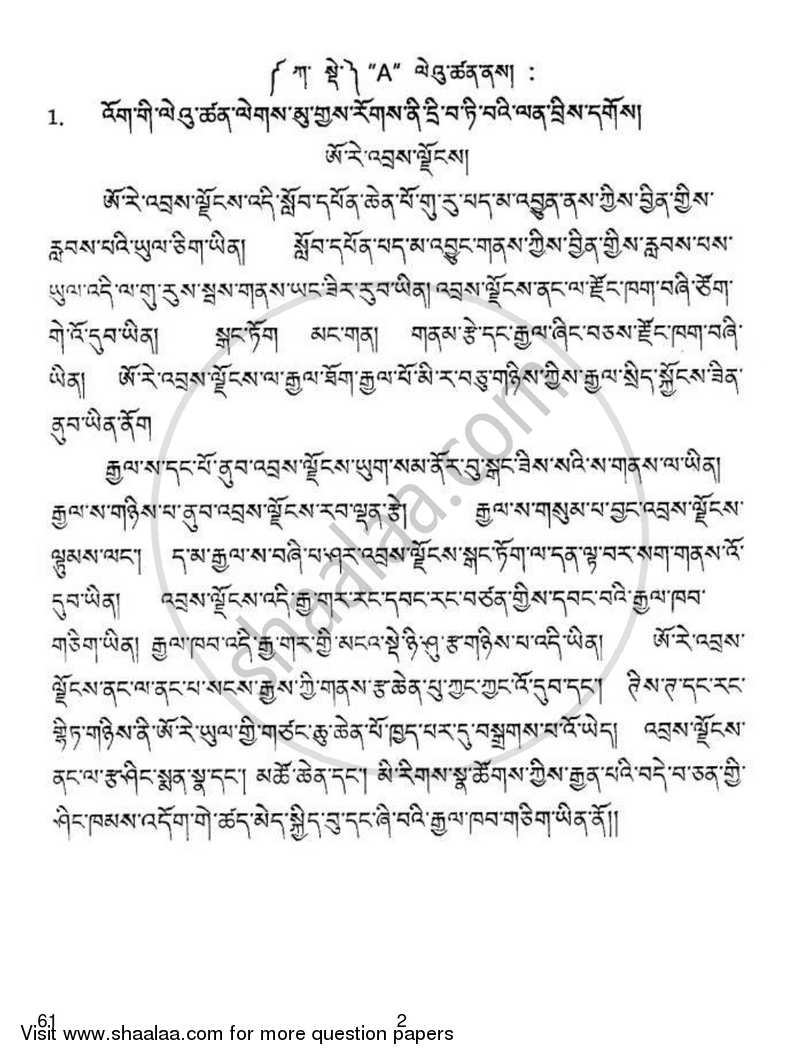 ༼ ཀ སྡེ་༽ "A" ལེའུ་ཚན་ནས། :
1. འོག་གི་ལེའུ་ཚན་ལེགས་མུ་གྱས་རོགས་ནི་དྲི་བ་ཏི་བའི་ལན་བྲིས་དགོས།
ཨོ་རེ་འབྲས་ལྗོངས།
ཨོ་རེ་འབྲས་ལྗོངས་འདི་སློབ་དཔོན་ཆེན་པོ་གུ་རུ་པད་མ་འབྱུན་ནས་ཀྱིས་བྱིན་གྱིས་
རླབས་པའི་ཡུལ་ཅིག་ཡིན། སློབ་དཔོན་པད་མ་འབྱུང་གནས་ཀྱིས་བྱིན་གྱིས་རླབས་པས་
ཡུལ་འདི་ལ་གུ་རུས་སྦས་གནས་ཡང་ཟེར་རུབ་ཡིན། འབྲས་ལྗོངས་ནང་ལ་རྫོང་ཁག་བཞི་ཙོག་
གེ་འོ་དུབ་ཡིན། སྒང་ཏོག མང་གན། གནམ་རྩེ་དང་རྒྱལ་ཞིང་བཅས་རྫོང་ཁག་བཞི་
ཡིན། ཨོ་རེ་འབྲས་ལྗོངས་ལ་རྒྱལ་ཐོག་རྒྱལ་པོ་མི་ར་བཅུ་གཉིས་ཀྱིས་རྒྱལ་སྲིད་སྐྱོངས་ཟིན་
ནུབ་ཡིན་ནོག
རྒྱལ་ས་དང་པོ་ནུབ་འབྲས་ལྗོངས་ཡུག་སམ་ནོར་བུ་སྒང་ཟེས་སའི་ས་གནས་ལ་ཡིན།
རྒྱལ་ས་གཉིས་པ་ནུབ་འབྲས་ལྗོངས་རབ་ལྡན་རྩེ། རྒྱལ་ས་གསུམ་པ་བྱང་འབྲས་ལྗོངས་
ལྷུམས་ལང་། ད་མ་རྒྱལ་ས་བཞི་པ་ཤར་འབྲས་ལྗོངས་སྒང་ཏོག་ལ་དན་ལྟ་བར་སག་གནས་འོ་
དུབ་ཡིན། འབྲས་ལྗོངས་འདི་རྒྱ་གར་རང་དབང་རང་བཙན་གྱིས་དབང་བའི་རྒྱལ་ཁབ་
གཅིག་ཡིན། རྒྱལ་ཁབ་འདི་རྒྱ་གར་གྱི་མངའ་སྡེ་ཉི་ཤུ་རྩ་གཉིས་པ་འདི་ཡིན། ཨོ་རེ་འབྲས་
ལྗོངས་ནང་ལ་ནང་པ་སངས་རྒྱས་ཀྱི་གནས་རྩ་ཆེན་པུ་ཀྱང་ཀྱང་འོ་དུབ་དང་། ཏིས་ཏ་དང་རང་
གཉིས་ནི་ཨོ་རེ་ཡུལ་གྱི་གཙང་ཆུ་ཆེན་པོ་ཁྱད་པར་དུ་བསྒྲགས་པ་འོ་ཡེད། འབྲས་ལྗོངས་
ནང་ལ་རྩ་ཤིང་སྨན་སྣ་དང་། མཚོ་ཆེན་དང་། མི་རིགས་སྣ་ཚོགས་ཀྱིས་རྒྱན་པའི་བདེ་བ་ཅན་གྱི་
ཤིང་ཁམས་འདོག་གེ་ཚད་མེད་སྐྱིད་བུ་དང་ཞི་བའི་རྒྱལ་ཁབ་གཅིག་ཡིན་ནོ།།
shaalaa.com
61 2
Visit www.shaalaa.com for more question papers